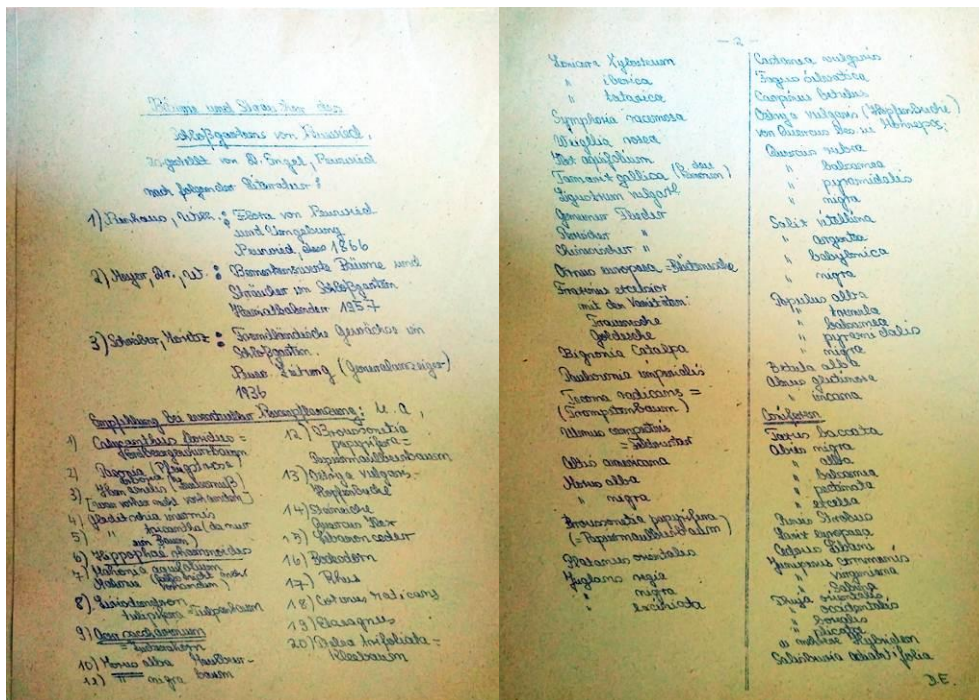 Bäume und Sträucher des
Schloßgartens von
von D. Engel,
nach folgender Literatur:
1) von
und Umgebung
1866
2) Meyer, Dr., W.: Bemerkenswerte Bäume und
Sträucher im Schloßgarten
1957
3) Moritz: Gewächse im
Schloßgarten.
Zeitung (Generalanzeiger)
1936
Empfehlung bei Neuanpflanzung: u. a.,
1) Calycanthus floridus =
2) Paeonia (Pfingstrose)
3)
4) Gleditschia inermis
5) " triacantha (da nur
ein Baum)
6) Hippophae rhamnoides
7) Mahonia aquifolium
8) Liriodendron
tulipifera = Tulpenbaum
9) Acer saccharinum
= Zuckerahorn
10) Morus alba
11) " nigra baum
12) Broussonetia
papyrifera =
Papiermaulbeerbaum
13) Ostrya vulgaris =
Hopfenbuche
14) Steineiche
Quercus Ilex
15) Libanonceder
16)
17) Rhus
18) radicans
19) Elaeagnus
20) Ptelea trifoliata =
Kleebaum
- 2 -
Lonicera Xylosteum
" iberica
" tatarica
Symphoria racemosa
Weigelia rosea
Ilex aquifolium
Tamarix gallica
Ligustrum vulgare
Gemeiner Flieder
Persischer "
Chinesischer "
Ornus europaea = Blütenesche
Fraxinus excelsior
mit den Varitäten:
Trauresche
Goldesche
Bignonia Catalpa
Paulownia imperialis
Tecoma radicans =
(Trompetenbaum)
Ulmus campestris
Morus alba
" nigra
Broussonetia papyrifera
(= Papiermaulbeerbaum)
Platanus orientalis
Juglans regia
" nigra
"
Castanea vulgaris
Fagus silvatica
Carpinus betulus
Ostrya vulgaris (Hopfenbuche)
von Quercus
Quercus rubra
" balsamea
" pyramidalis
" nigra
Salix vitellina
" argentea
" babylonica
" nigra
Populus alba
" tremula
" balsamea
" pyramidalis
" nigra
Betula alba
Alnus glutinosa
" incana
Coniferen
Taxus baccata
Abies nigra
" alba
" balsamea
" pectinata
" excelsa
Pinus Strobus
Larix europaea
Cedrus Libani
Juniperus communis
" virginiana
" Sabina
Thuja orientalis
" occidentalis
"
" plicata
u. mehrere Hybriden
Salisburia adiantifolia
D.E.